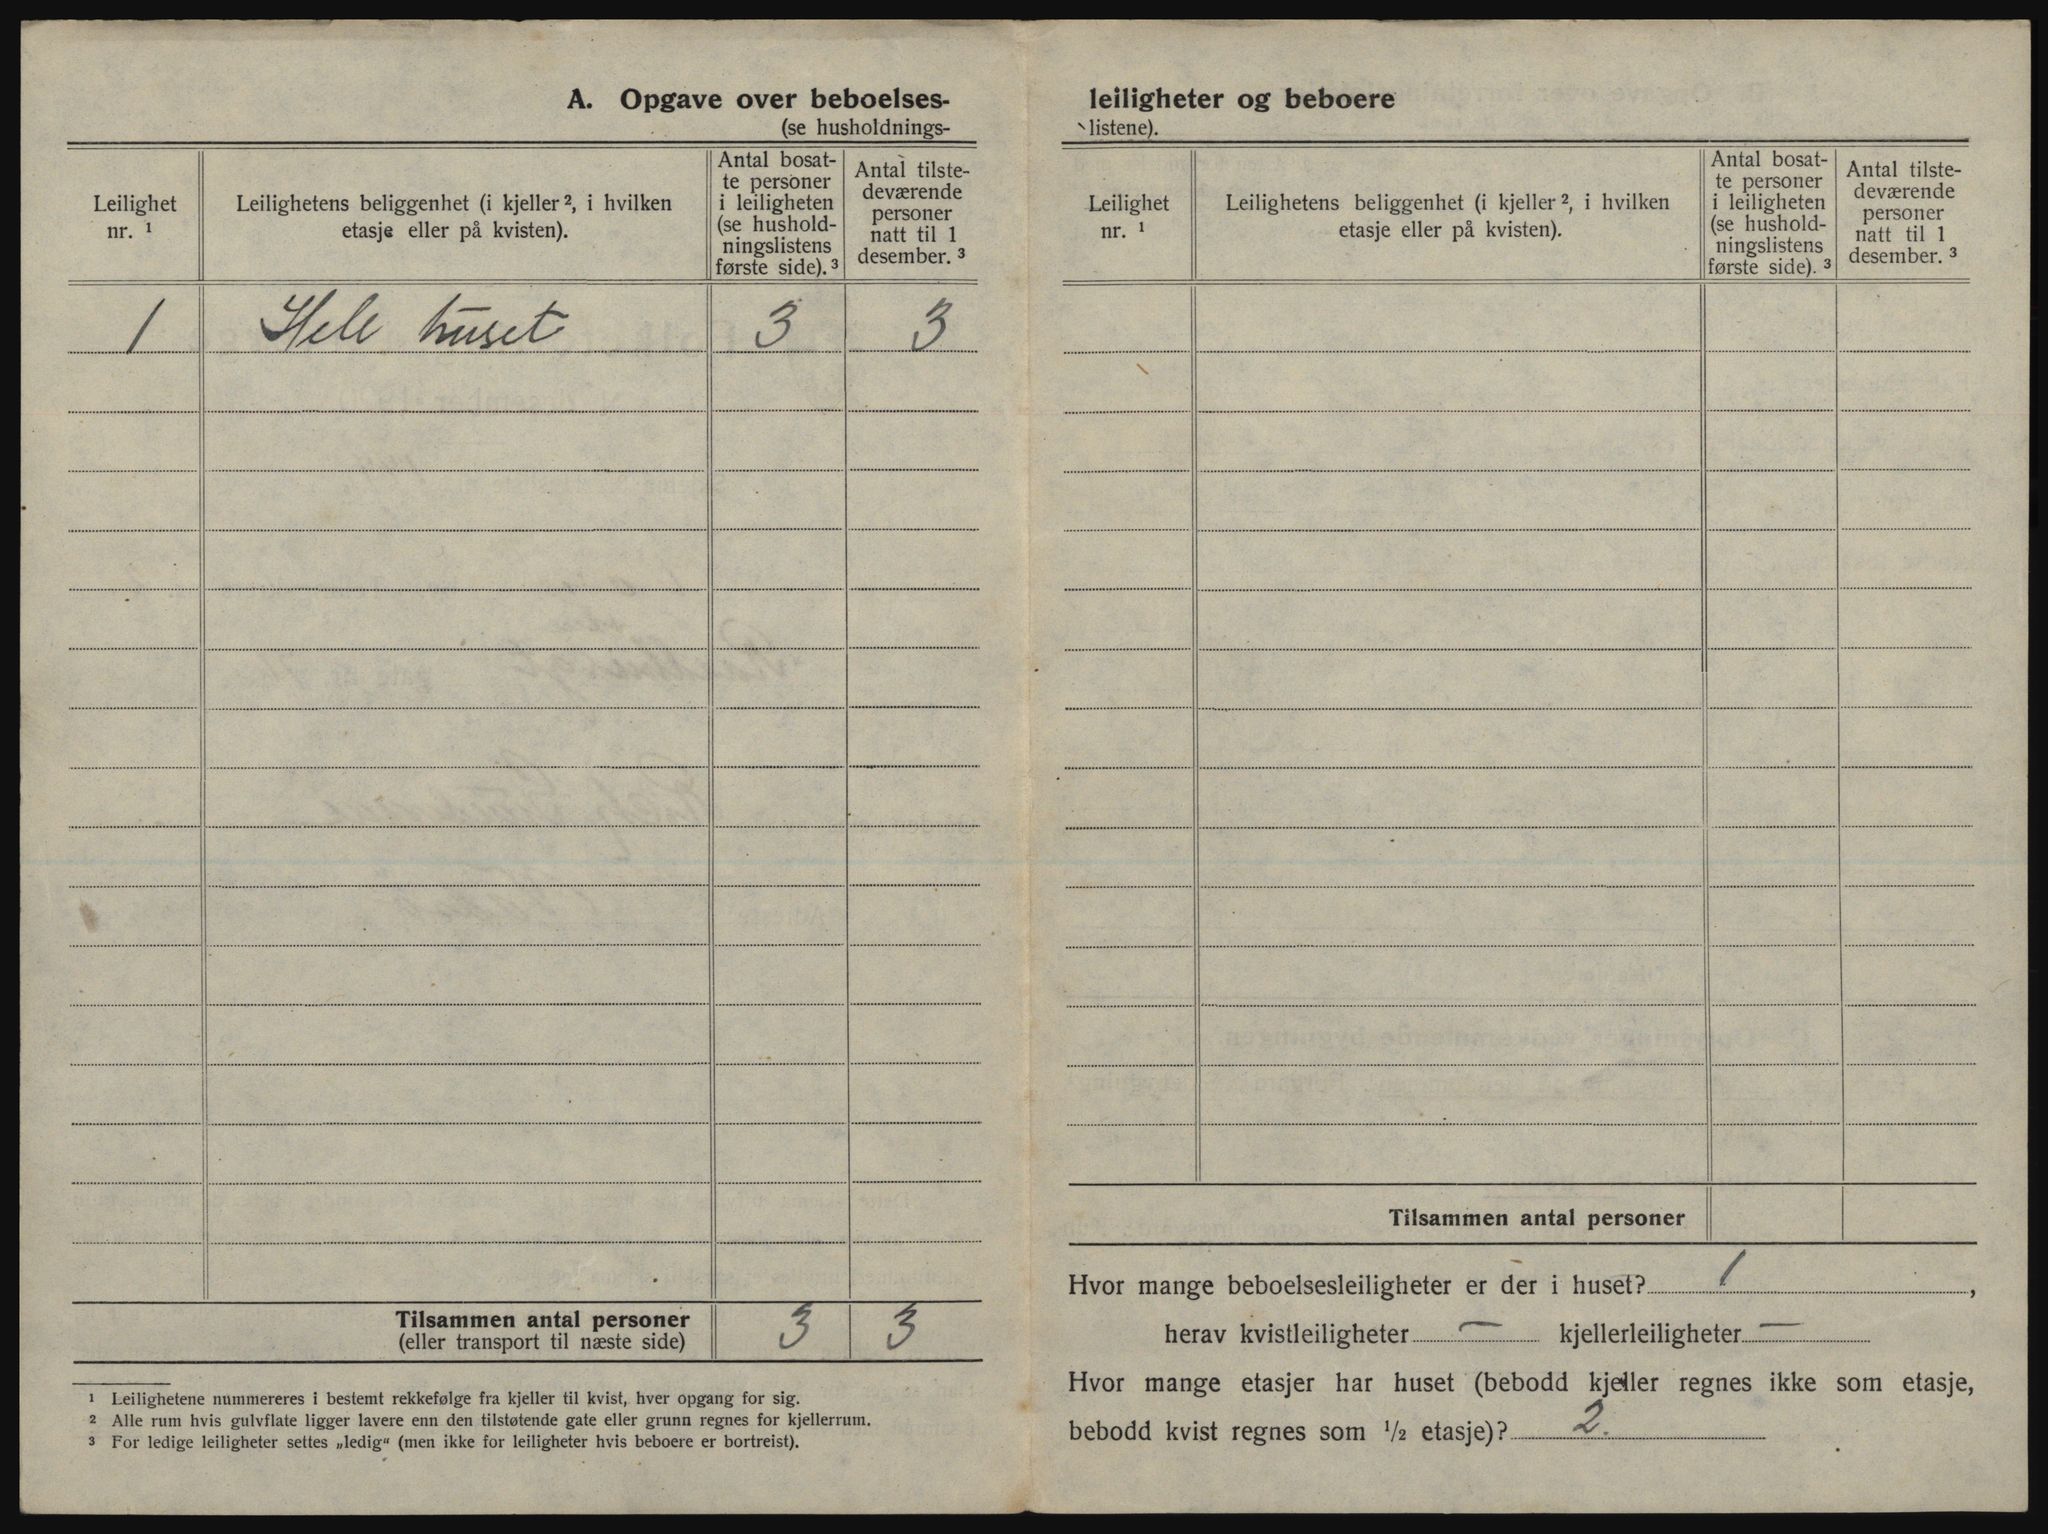 A. Opgave over beboelses-
(se husholdnings-
Leilighet nr. ¹
Leilighetens beliggenhet (i kjeller ², i hvilken
etasje eller på kvisten).
Antal bosat-
te personer
i leiligheten
(se hushold-
ningslistens
første side). ³
Antal tilste-
deværende
personer
natt til 1
desember. ³
1 Hele huset 3 3
Tilsammen antal personer 3 3
(eller transport til næste side)
¹ Leilighetene nummereres i bestemt rekkefølge fra kjeller til kvist, hver opgang for sig.
² Alle rum hvis gulvflate ligger lavere enn den tilstøtende gate eller grunn regnes for kjellerrum.
³ For ledige leiligheter settes „ledig“ (men ikke for leiligheter hvis beboere er bortreist).
leiligheter og beboere
listene).
Leilighet nr. ¹
Leilighetens beliggenhet (i kjeller ², i hvilken
etasje eller på kvisten).
Antal bosat-
te personer
i leiligheten
(se hushold-
ningslistens
første side). ³
Antal tilste-
deværende
personer
natt til 1
desember. ³
Tilsammen antal personer
Hvor mange beboelsesleiligheter er der i huset? 1,
herav kvistleiligheter — kjellerleiligheter —
Hvor mange etasjer har huset (bebodd kjeller regnes ikke som etasje,
bebodd kvist regnes som ½ etasje)? 2.